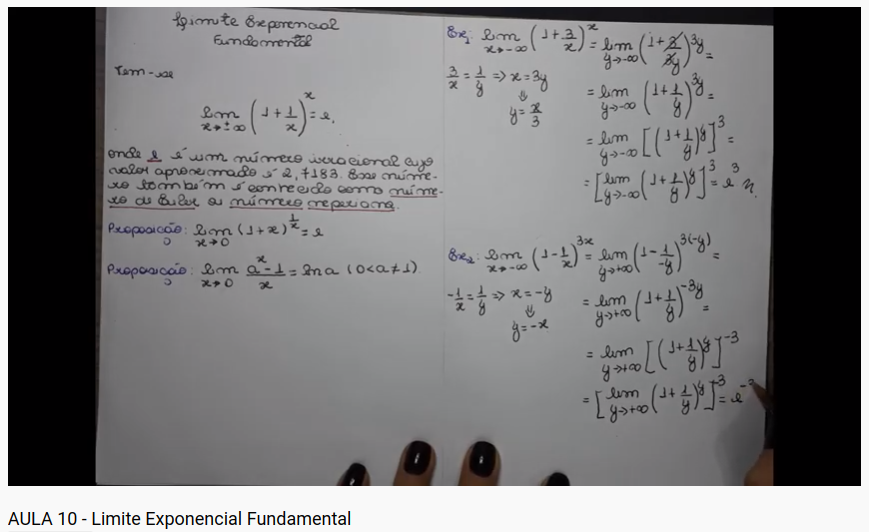 Limite Exponencial
Fundamental
Tem-se
lim x→±∞ (1+1/x)^x = e,
onde e é um número irracional cujo
valor aproximado é 2,7183. Esse núme-
ro também é conhecido como núme-
ro de Euler ou número neperiano.
Proposição: lim x→0 (1+x)^(1/x) = e
Proposição: lim x→0 (a^x-1)/x = ln a (0<a≠1)
Ex1: lim x→-∞ (1+3/x)^x = lim y→-∞ (1+3/3y)^3y =
3/x = 1/y ⇒ x=3y
⇓
y = x/3
= lim y→-∞ (1+1/y)^3y =
= lim y→-∞ [(1+1/y)^y]^3 =
= [lim y→-∞ (1+1/y)^y]^3 = e^3
Ex2: lim x→-∞ (1-1/x)^3x = lim y→+∞ (1-1/-y)^3(-y) =
-1/x = 1/y ⇒ x=-y
⇓
y=-x
= lim y→+∞ (1+1/y)^-3y =
= lim y→+∞ [(1+1/y)^y]^-3
= [lim y→+∞ (1+1/y)^y]^-3 = e^-3
AULA 10 - Limite Exponencial Fundamental